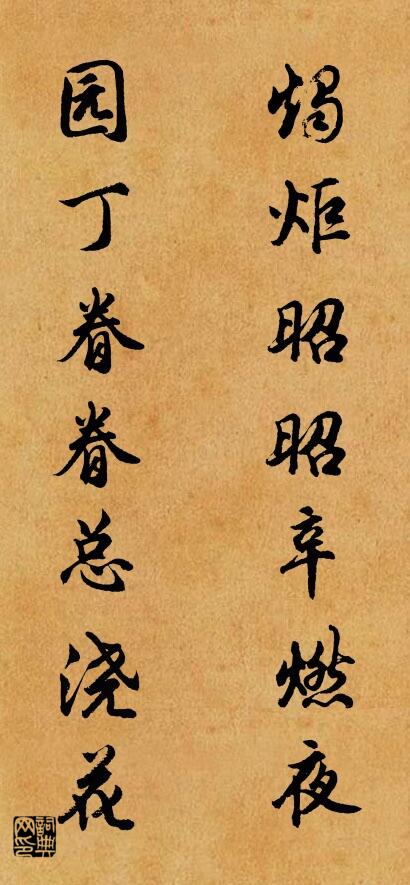 燭炬昭昭辛燃夜
园丁眷眷总浇花
詞典网印